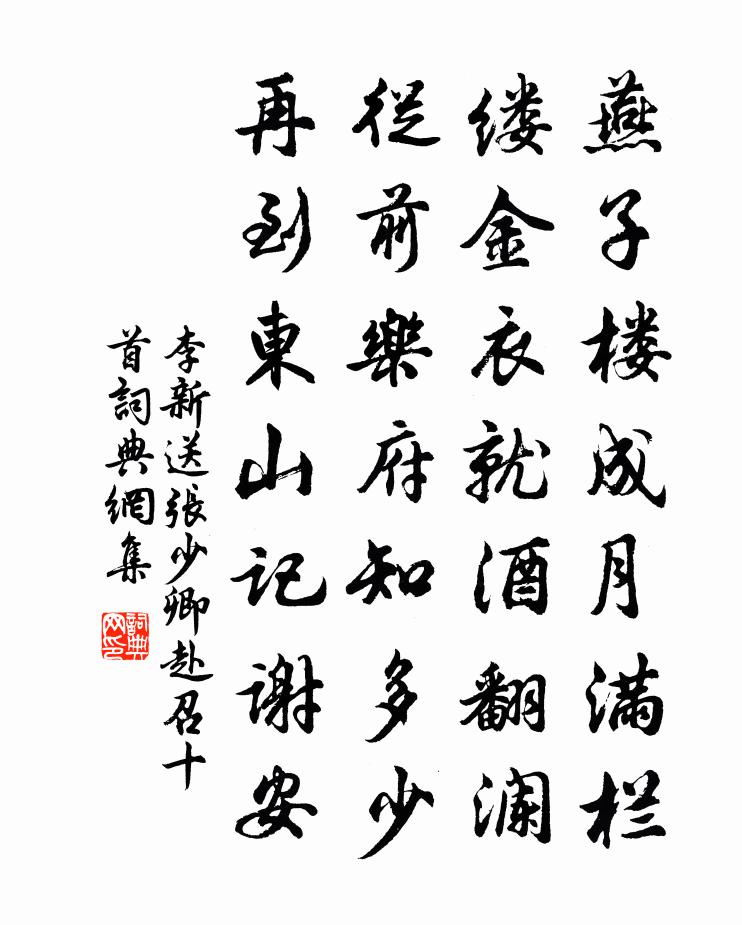 燕子楼成月满栏
缕金衣就酒翻澜
從前樂府知多少
再到東山记谢安
李新送張少卿赴召十
首詞典網集
詞典
网印